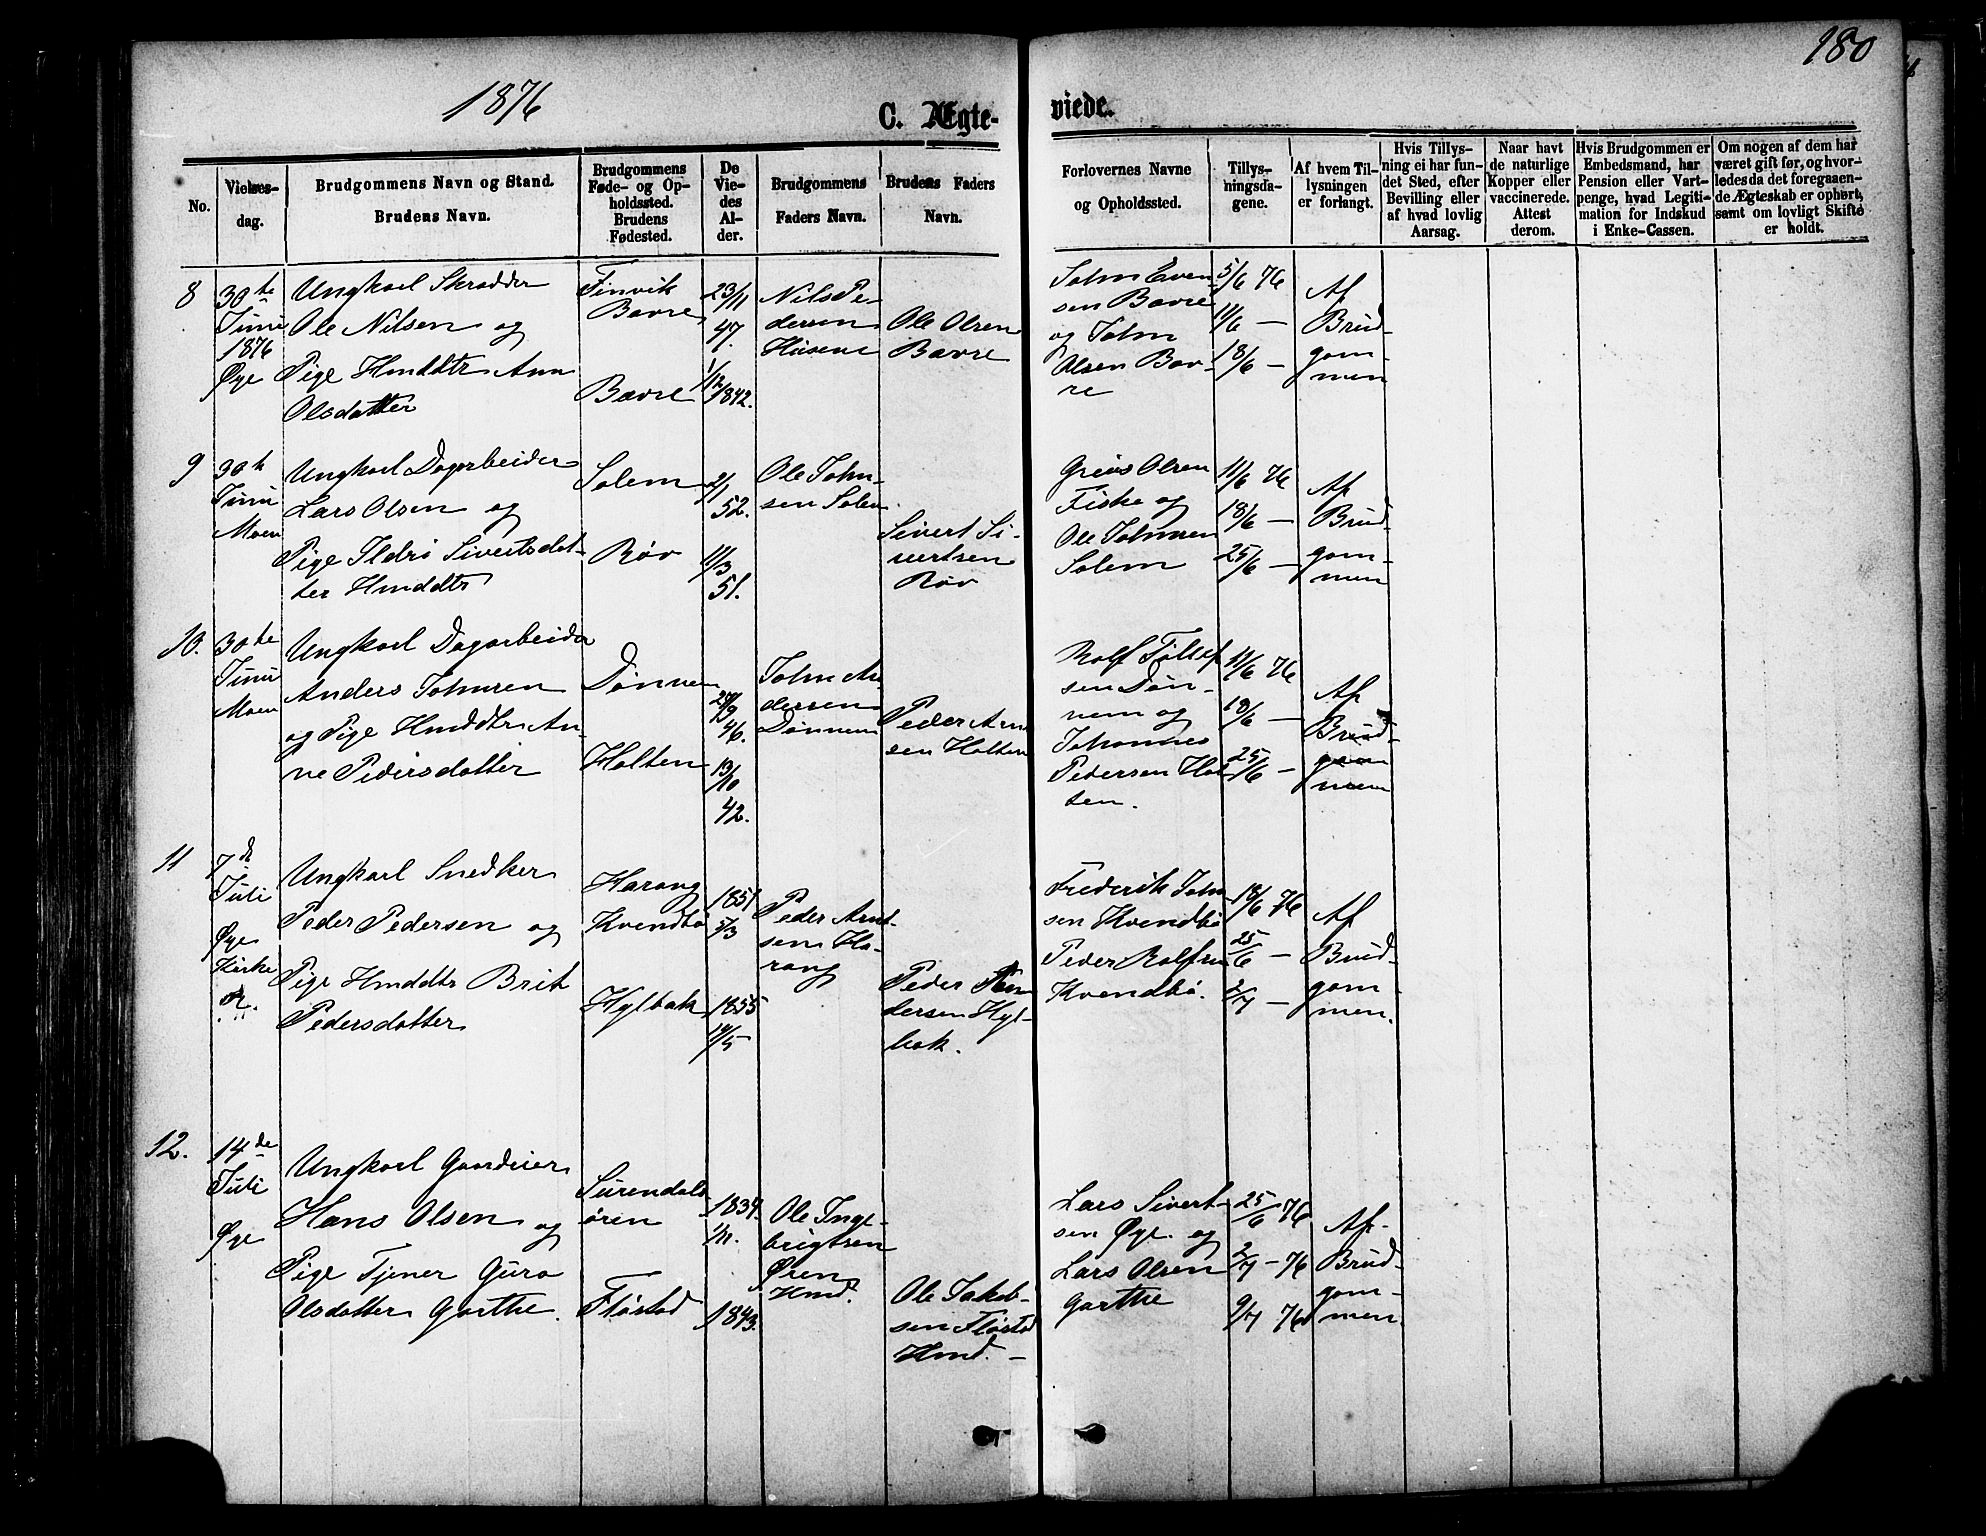 180
1876
C. Ægte-
viede.
No.
Vielses-
dag.
Brudgommens Navn og Stand.
Brudens Navn.
Brudgommens
Føde- og Op-
holdssted.
Brudens
Fødested.
De
Vie-
des
Al-
der.
Brudgommens
Faders Navn.
Brudens Faders
Navn.
Forlovernes Navne
og Opholdssted.
Tillys-
ningsda-
gene.
Af hvem Til-
lysningen
er forlangt.
Hvis Tillys-
ning ei har fun-
det Sted, efter
Bevilling eller
af hvad lovlig
Aarsag.
Naar havt
de naturlige
Kopper eller
vaccinerede.
Attest
derom.
Hvis Brudgommen er
Embedsmand, har
Pension eller Vart-
penge, hvad Legiti-
mation for Indskud
i Enke-Cassen.
Om nogen af dem har
været gift før, og hvor-
ledes da det foregaaen-
de Ægteskab er ophørt,
samt om lovligt Skifte
er holdt.
8
30te
Juni
1876
Øye
Ungkarl Skrædder
Ole Nilsen og
Pige Hmddtr Ann
Olsdatter
Finvik
Bævre
Bævre
23/11
47.
1/12
1842.
Nils Pe-
dersen
Husene
Ole Olsen
Bævre
John Even
sen Bævre
og John
Olsen Bæv-
re
5/6 76
11/6 —
18/6 —
Af
Brud-
gom-
men
9
30te
Juni
Moen
Ungkarl Dagarbeider
Lars Olsen og
Pige Ildri Sivertsdat-
ter Hmddtr
Solem
Røv
2/1
52.
11/3
51.
Ole John-
sen Solem
Sivert Si-
vertsen
Røv
Greus Olsen
Fiske og
Ole Johnsen
Solem
11/6 76
18/6 —
25/6 —
Af
Brud-
gom-
men
10.
30te
Juni
Moen
Ungkarl Dagarbeider
Anders Johnsen
og Pige Hmddtr An-
ne Pedersdatter
Dønnem
Holten
46.
13/10
42.
John An-
dersen
Dønnem
Peder Arn
sen Holten
Rolf
sen Døn-
nem og
Johannes
Pedersen Hol
ten.
11/6 76
18/6 —
25/6 —
Af
Brud-
gom
men
11
7de
Juli
Øye
Kirke
Ungkarl Snedker
Peder Pedersen og
Pige Hmddtr Brit
Pedersdatter
Harang
Kvendbø
Hylbak
1851
5/3
1855
19/5
Peder Arnt-
sen Ha-
rang
Peder
dersen Hyl-
bak.
Frederik John
sen Kvendbø
Peder Rolfsen
Kvendbø.
18/6 76
25/6 —
2/7 —
Af
Brud-
gom
men.
12.
14de
Juli
Øye
Ungkarl Gaardeier
Hans Olsen og
Pige Tjener Guro
Olsdatter Garthe.
Surendals
øren
Fløstad
1834.
1/11.
1843.
Ole Inge-
brigtsen
Øren
Hmd.
Ole Jakob-
sen Fløstad
Hmd. —
Lars Sivert-
sen Øye og
Lars Olsen
Garthe
25/6 76
2/7 — 76
9/7 76
Af
Brud-
gom-
men.